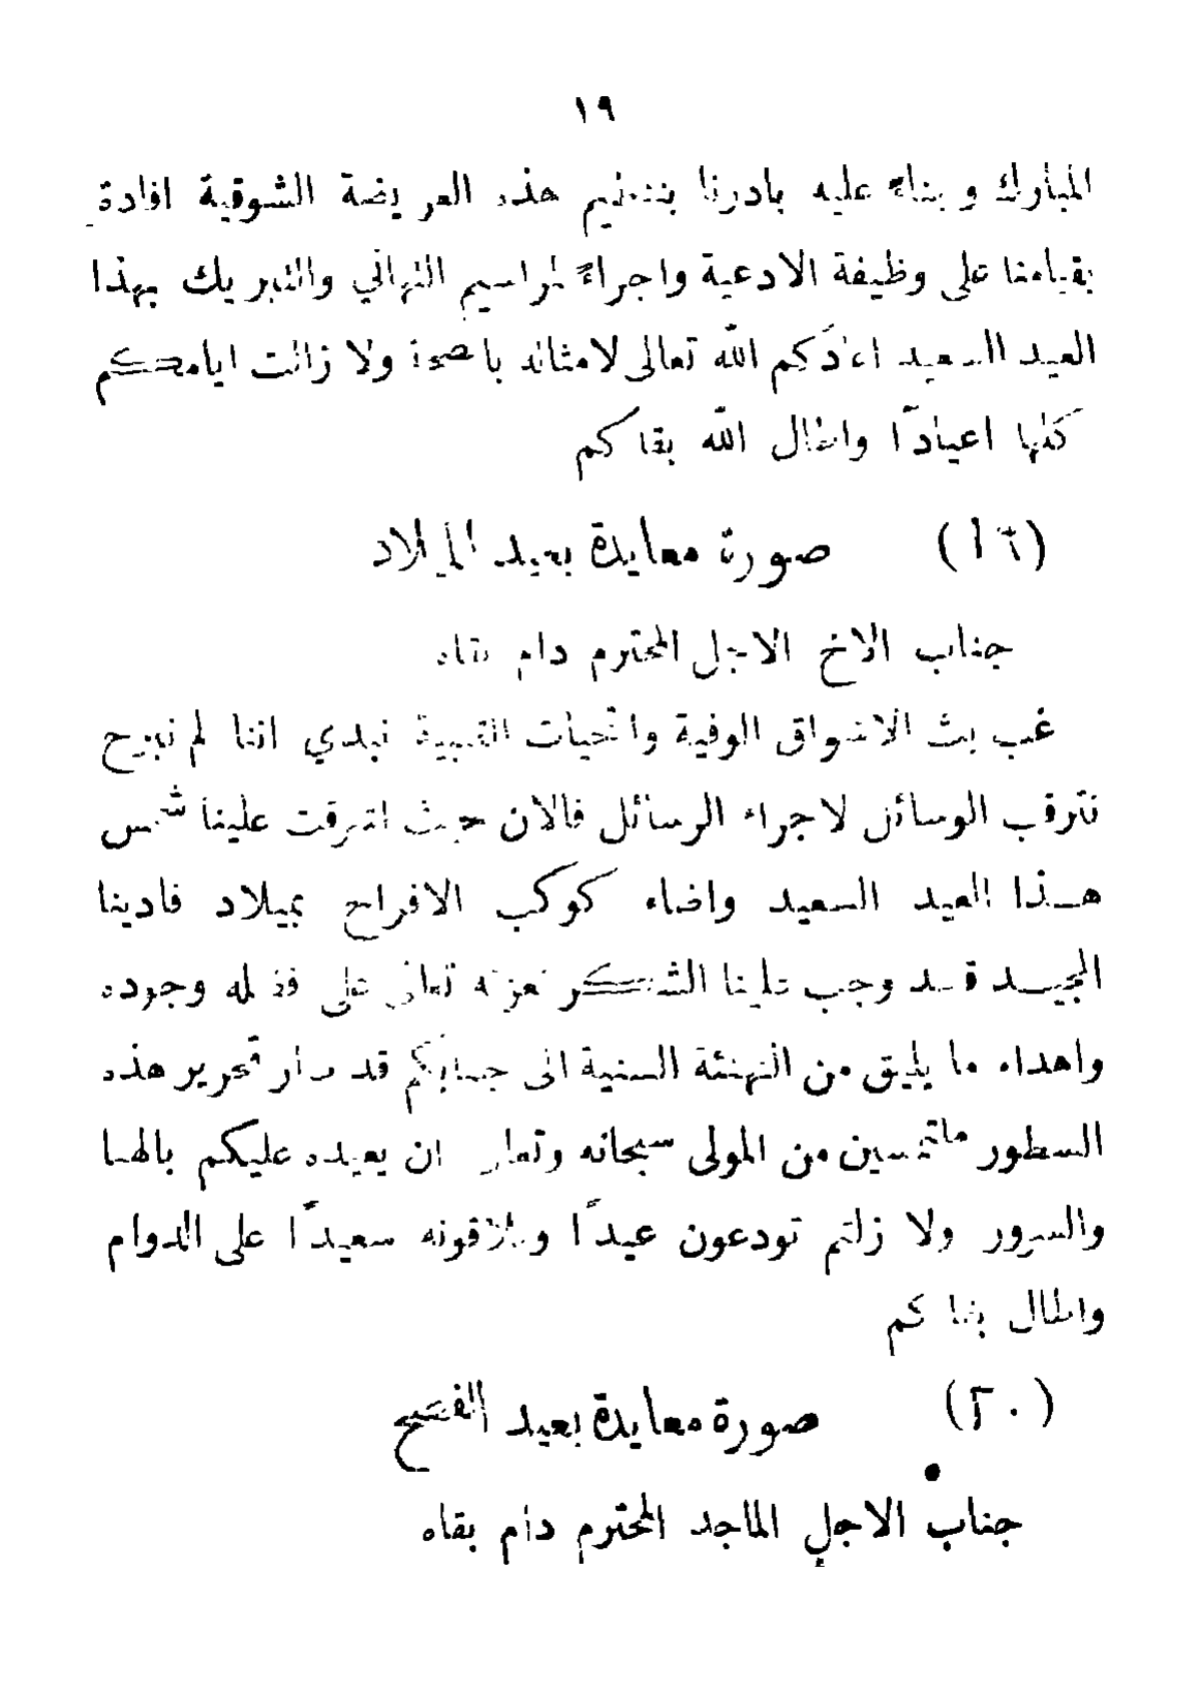 ١٩
المبارك وبناءً عليه بادرنا بتقديم هذه العريضة الشوقية افادة
بقيامنا على وظيفة الادعية واجراءً لمراسيم التهاني والتبريك بهذا
العيد السعيد اعادكم الله تعالى لامثاله بالصحة ولا زالت ايامكم
كلها اعيادًا واطال الله بقاكم
صورة معايدة بعيد الميلاد
جناب الاخ الاجل المحترم دام بقاه
غب بث الاشواق الوفية والتحيات القلبية نبدي اننا لم نبرح
نترقب الوسائل لاجراء الرسائل فالان حيث اشرقت علينا شمس
هذا العيد السعيد واضاء كوكب الافراح بميلاد فادينا
المجيد قد وجب علينا الشكر لعزته تعالى على فضله وجوده
واهداء ما يليق من التهنئة السنية الى جنابكم قد صار تحرير هذه
السطور ملتمسين من المولى سبحانه وتعالى ان يعيده عليكم بالهنا
والسرور ولا زلتم تودعون عيدًا وتلاقونه سعيدًا على الدوام
واطال بقاكم
(٢٠) صورة معايدة بعيد الفصح
جناب الاجل الماجد المحترم دام بقاه